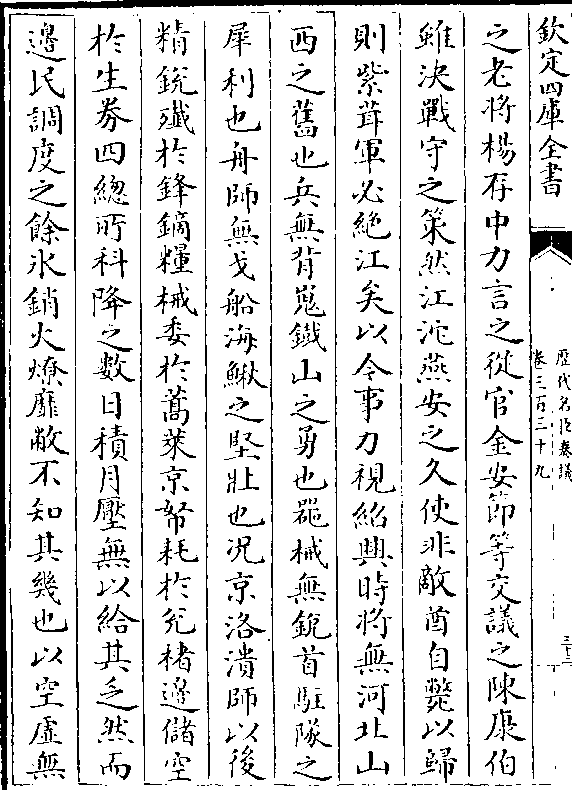 欽定四庫全書
歷代名臣奏議
卷三百三十九
之老將楊存中力言之從官金安節等交議之陳康伯
雖決戰守之策然江沱燕安之久使非敵酋自斃以歸
則紫茸軍必絶江矣以今事力視紹興時將無河北山
西之舊也兵無背嵬鐵山之勇也器械無銳首駐隊之
犀利也舟師無戈船海鰍之堅壯也況京洛潰師以後
精銳殲於鋒鏑糧械委於蒿萊京帑耗於兌楮邊儲空
於生劵四總所科降之數日積月壓無以給其乏然而
邊民調度之餘氷銷火燎靡敝不知其幾也以空虚無